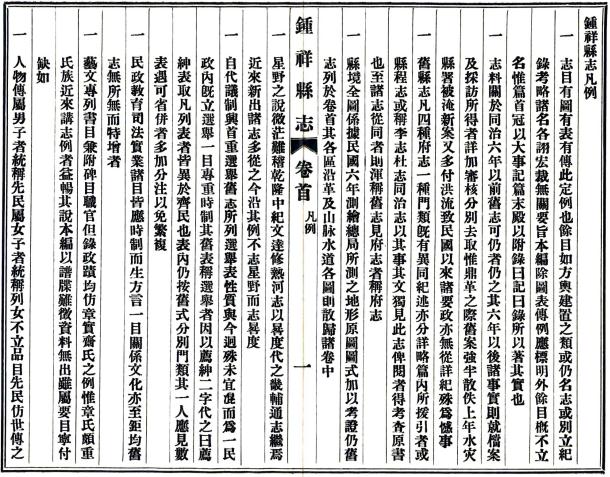 鍾祥縣志凡例
一　志目有圖有表有傳此定例也餘目如方輿建置之類或仍名志或別立紀
錄考略諸名各詡宏裁無關要旨本編除圖表傳例應標明外餘目槪不立
名惟篇首冠以大事記篇末殿以附錄曰記曰錄所以著其實也
一　志料關於同治六年以前舊志可仍者仍之其六年以後諸事實則就檔案
及採訪所得者詳加審核分別去取惟鼎革之際舊案强半散佚上年水災
縣署被淹新案又多付洪流致民國以來諸要政亦無從詳紀殊爲憾事
一　舊縣志凡四種府志一種門類旣有異同紀述亦分詳略篇內所援引者或
縣程志或稱李志杜志同治志以其事其文獨見此志俾閱者得考查原書
也至諸志從同者則渾稱舊志見府志者稱府志
一　縣境全圖係據民國六年測繪總局所測之地形原圖圖式加以考證仍舊
志列於卷首其各區沿革及山脉水道各圖則散歸諸卷中
鍾祥縣志
卷首
凡例
一
一　星野之說微茫難稽乾隆中紀文達修熱河志以晷度代之畿輔通志繼焉
近來新出諸志多從之今沿其例不志星野而志晷度
一　自代議制興首重選舉舊志所列選舉表性質與今迥殊未宜混而爲一民
政內旣立選舉一目專重時制其舊表稱選舉者因以薦紳二字代之曰薦
紳表取凡列表者皆異於齊民也表內仍按舊式分別門類其一人應見數
表過可省併者多加分注以免繁複
一　民政教育司法實業諸目皆應時制而生方言一目關係文化亦至鉅均舊
志無所無而特增者
一　藝文專列書目兼附碑目職官但錄政蹟均仿章實齋氏之例惟章氏頗重
氏族近來講志例者益暢其說本編以譜牒難徵資料無出雖屬要目寧付
缺如
一　人物傳屬男子者統稱先民屬女子者統稱列女不立品目先民仿世傳之